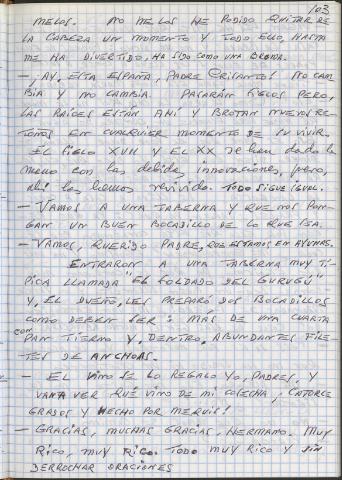 103
MELOS. NO ME LOS HE PODIDO QUITAR DE
LA CABEZA UN MOMENTO Y TODO ELLO, HASTA
ME HA DIVERTIDO, HA SIDO COMO UNA BROMA.
— ¡AY, ESTA ESPAÑA, PADRE CRISANTO! NO CAM-
BIA Y NO CAMBIA. PASARÁN SIGLOS PERO,
LAS RAÍCES ESTÁN AHÍ Y BROTAN NUEVOS RE-
TOÑOS EN CUALQUIER MOMENTO DE SU VIVIR.
EL SIGLO XVII Y EL XX se han dado la
mano con las debidas innovaciones, pero,
ahí las hemos revivido. TODO SIGUE IGUAL.
— VAMOS A UNA TABERNA Y QUE NOS PON-
GAN UN BUEN BOCADILLO DE LO QUE SEA.
— VAMOS, QUERIDO PADRE, QUE ESTAMOS EN AYUNAS.
ENTRARON A UNA TABERNA MUY TÍ-
PICA LLAMADA "EL SOLDADO DEL GURUGÚ"
Y, EL DUEÑO, LES PREPARÓ DOS BOCADILLOS
COMO DEBEN SER: MÁS DE UNA CUARTA
CON
PAN TIERNO Y, DENTRO, ABUNDANTES FILE-
TES DE ANCHOAS.
— EL VINO SE LO REGALO YO, PADRES, Y
VAN A VER QUÉ VINO DE MI COSECHA; CATORCE
GRADOS Y HECHO POR MENUIS!
— GRACIAS, MUCHAS GRACIAS, HERMANO. MUY
RICO, MUY RICO. TODO MUY RICO Y SIN
DERROCHAR ORACIONES